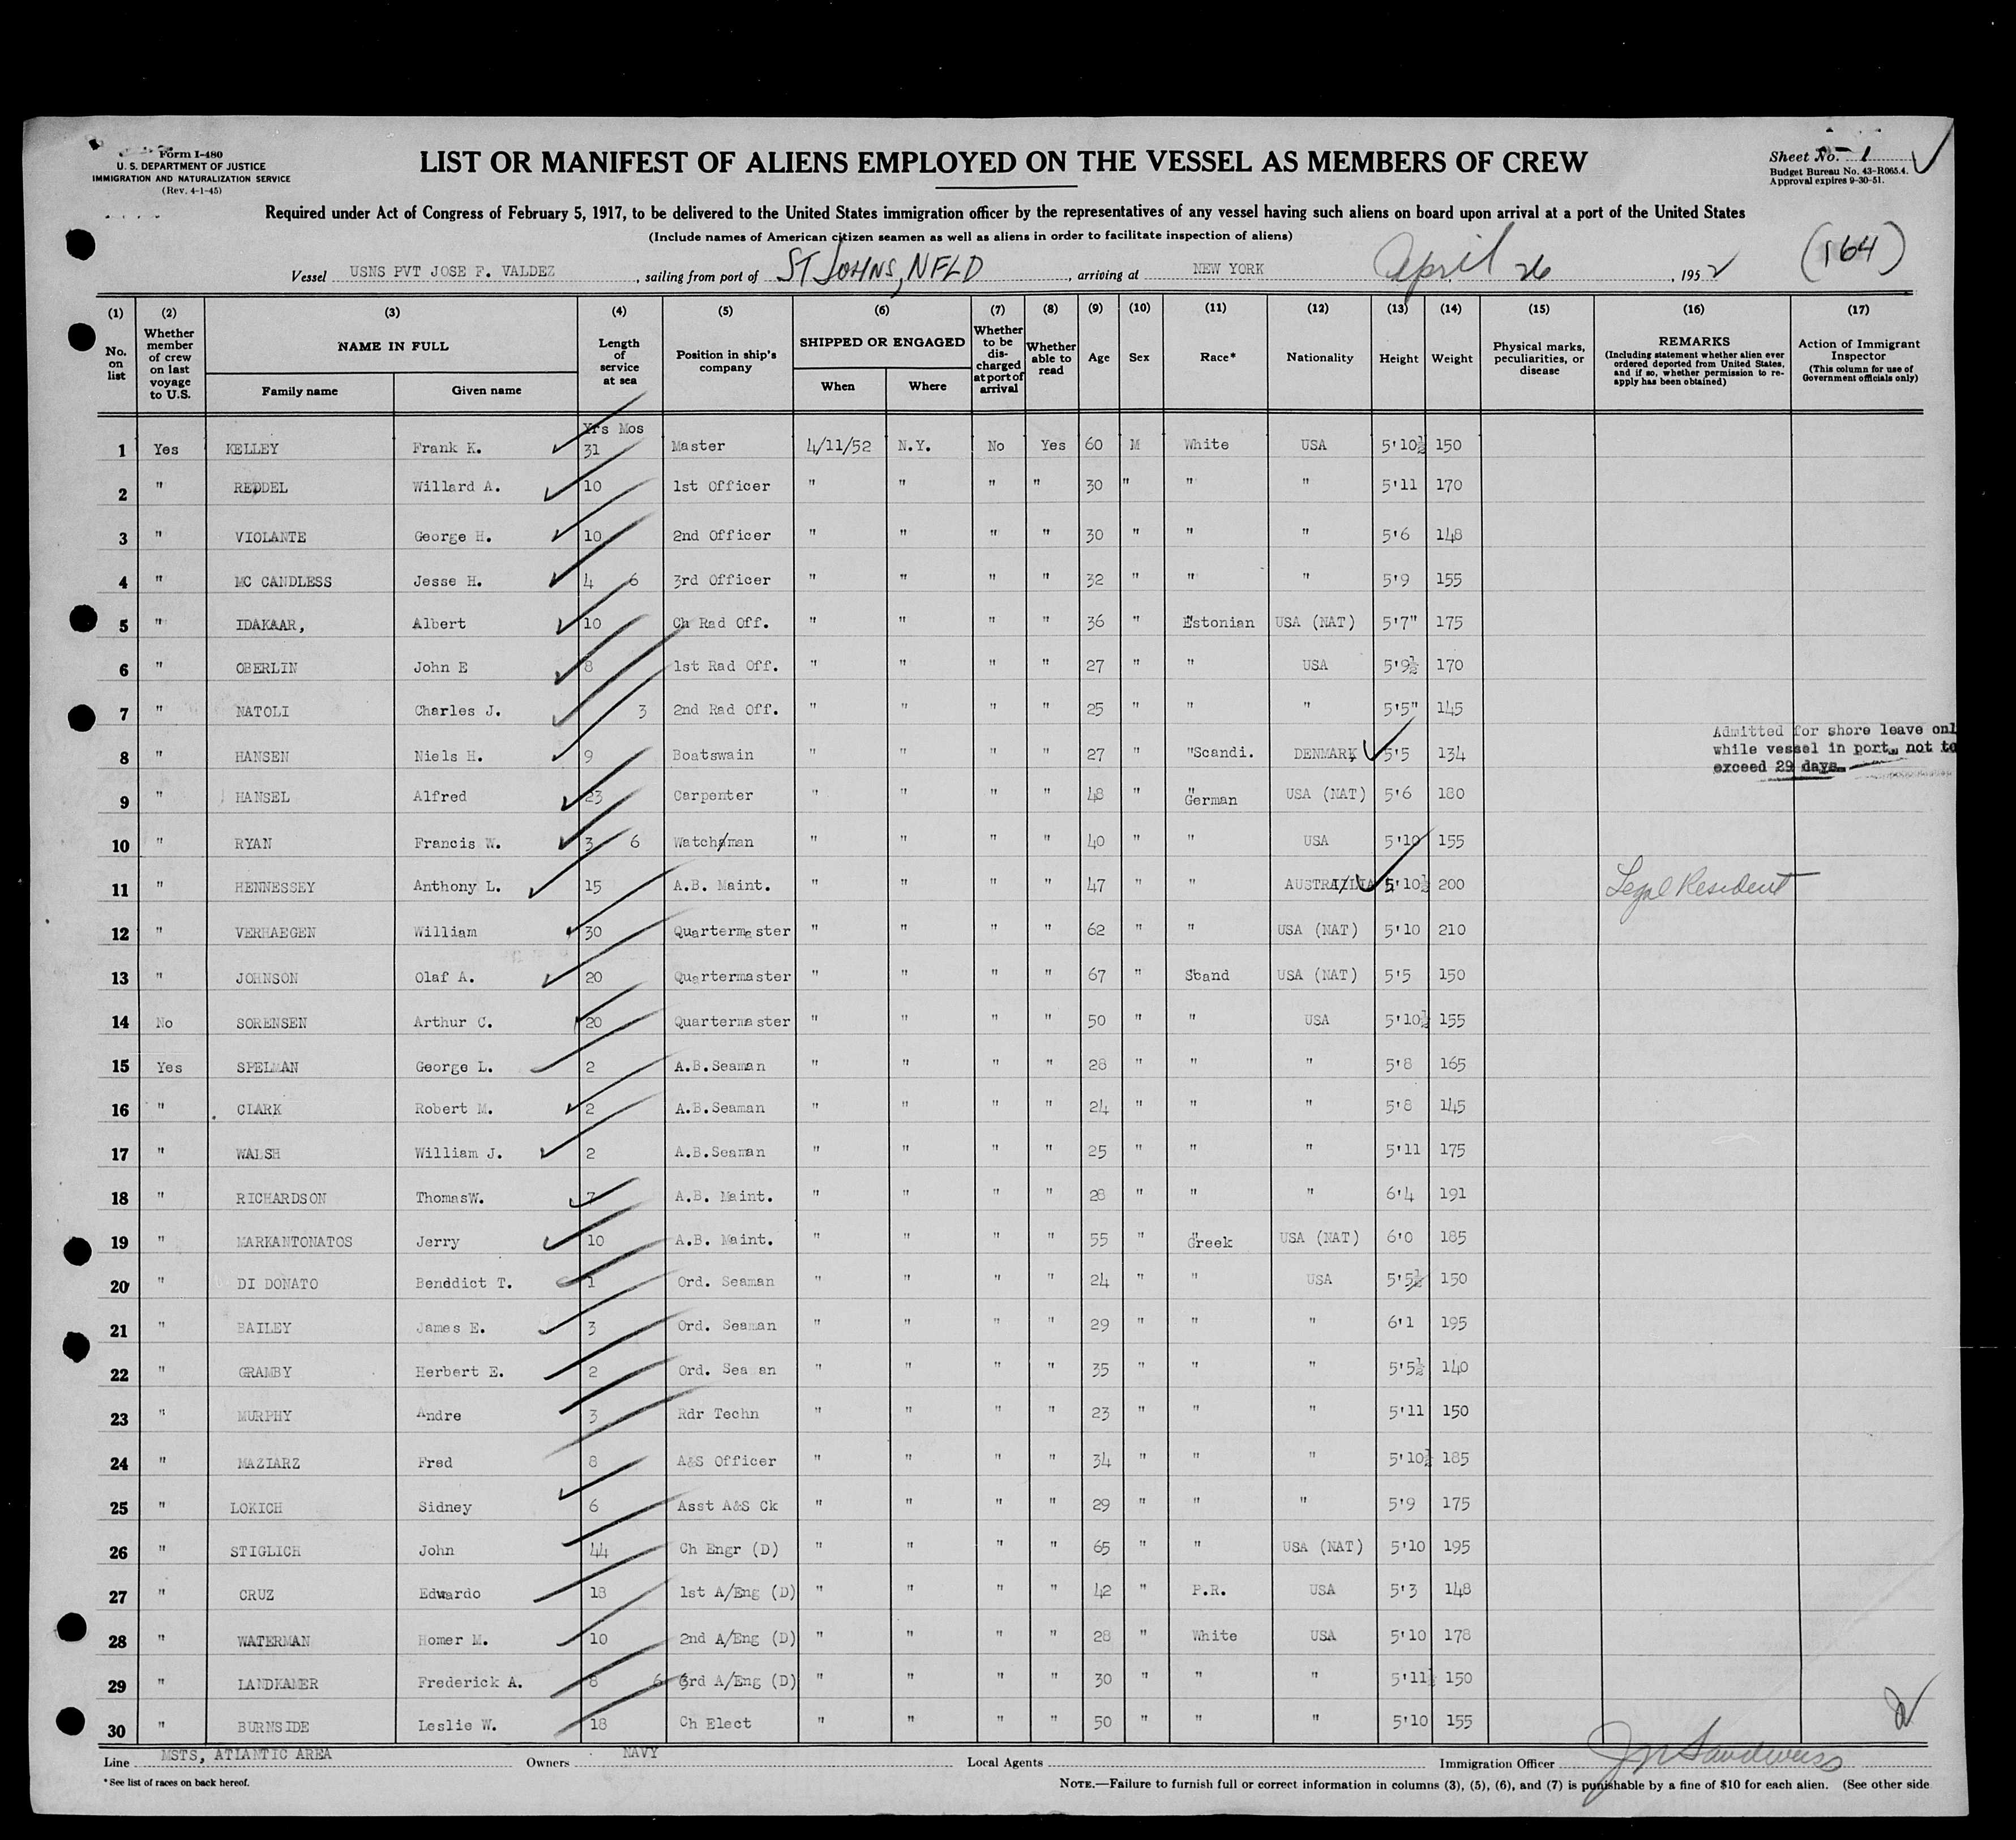 Form I-480
U. S. DEPARTMENT OF JUSTICE
IMMIGRATION AND NATURALIZATION SERVICE
(Rev. 4-1-45)
LIST OR MANIFEST OF ALIENS EMPLOYED ON THE VESSEL AS MEMBERS OF CREW
Sheet No. 1
Budget Bureau No. 43-R065.4.
Approval expires 9-30-51.
Required under Act of Congress of February 5, 1917, to be delivered to the United States immigration officer by the representatives of any vessel having such aliens on board upon arrival at a port of the United States
(Include names of American citizen seamen as well as aliens in order to facilitate inspection of aliens)
(164)
Vessel USNS PVT JOSE F. VALDEZ, sailing from port of ST JOHNS, NFLD, arriving at NEW YORK April 26, 1952
(1) (2) (3) (4) (5) (6) (7) (8) (9) (10) (11) (12) (13) (14) (15) (16) (17)
No. on list
Whether member of crew on last voyage to U.S.
NAME IN FULL
Family name
Given name
Length of service at sea
Position in ship's company
SHIPPED OR ENGAGED
When
Where
Whether to be discharged at port of arrival
Whether able to read
Age
Sex
Race*
Nationality
Height
Weight
Physical marks, peculiarities, or disease
REMARKS
(Including statement whether alien ever ordered deported from United States, and if so, whether permission to reapply has been obtained)
Action of Immigrant Inspector
(This column for use of Government officials only)
Yrs Mos
1 Yes KELLEY Frank K. 31 Master 4/11/52 N.Y. No Yes 60 M White USA 5'10½ 150
2 " REDDEL Willard A. 10 1st Officer " " " " 30 " " " 5'11 170
3 " VIOLANTE George H. 10 2nd Officer " " " " 30 " " " 5'6 148
4 " MC CANDLESS Jesse H. 4 6 3rd Officer " " " " 32 " " " 5'9 155
5 " IDAKAAR, Albert 10 Ch Rad Off. " " " " 36 " Estonian USA (NAT) 5'7" 175
6 " OBERLIN John E 8 1st Rad Off. " " " " 27 " " USA 5'9½ 170
7 " NATOLI Charles J. 3 2nd Rad Off. " " " " 25 " " " 5'5" 145
8 " HANSEN Niels H. 9 Boatswain " " " " 27 " "Scandi. DENMARK 5'5 134 Admitted for shore leave onl
while vessel in port, not to
exceed 29 days.
9 " HANSEL Alfred 23 Carpenter " " " " 48 " " German USA (NAT) 5'6 180
10 " RYAN Francis W. 3 6 Watchman " " " " 40 " " USA 5'10 155
11 " HENNESSEY Anthony L. 15 A.B. Maint. " " " " 47 " " AUSTRALIA 5'10½ 200 Legal Resident
12 " VERHAEGEN William 30 Quartermaster " " " " 62 " " USA (NAT) 5'10 210
13 " JOHNSON Olaf A. 20 Quartermaster " " " " 67 " Scand USA (NAT) 5'5 150
14 No SORENSEN Arthur C. 20 Quartermaster " " " " 50 " " USA 5'10½ 155
15 Yes SPELMAN George L. 2 A.B.Seaman " " " " 28 " " " 5'8 165
16 " CLARK Robert M. 2 A.B.Seaman " " " " 24 " " " 5'8 145
17 " WALSH William J. 2 A.B.Seaman " " " " 25 " " " 5'11 175
18 " RICHARDSON ThomasW. 7 A.B. Maint. " " " " 28 " " " 6'4 191
19 " MARKANTONATOS Jerry 10 A.B. Maint. " " " " 55 " " Greek USA (NAT) 6'0 185
20 " DI DONATO Benddict T. 1 Ord. Seaman " " " " 24 " " USA 5'5½ 150
21 " BAILEY James E. 3 Ord. Seaman " " " " 29 " " " 6'1 195
22 " GRAMBY Herbert E. 2 Ord. Sea an " " " " 35 " " " 5'5½ 140
23 " MURPHY Andre 3 Rdr Techn " " " " 23 " " " 5'11 150
24 " MAZIARZ Fred 8 A&S Officer " " " " 34 " " " 5'10½ 185
25 " LOKICH Sidney 6 Asst A&S Ck " " " " 29 " " " 5'9 175
26 " STIGLICH John 44 Ch Engr (D) " " " " 65 " " USA (NAT) 5'10 195
27 " CRUZ Edwardo 18 1st A/Eng (D) " " " " 42 " P.R. USA 5'3 148
28 " WATERMAN Homer M. 10 2nd A/Eng (D) " " " " 28 " White USA 5'10 178
29 " LANDKAMER Frederick A. 8 6 3rd A/Eng (D) " " " " 30 " " " 5'11½ 150
30 " BURNSIDE Leslie W. 18 Ch Elect " " " " 50 " " " 5'10 155
Line MSTS, ATLANTIC AREA Owners NAVY Local Agents Immigration Officer
*See list of races on back hereof.
NOTE.—Failure to furnish full or correct information in columns (3), (5), (6), and (7) is punishable by a fine of $10 for each alien. (See other side